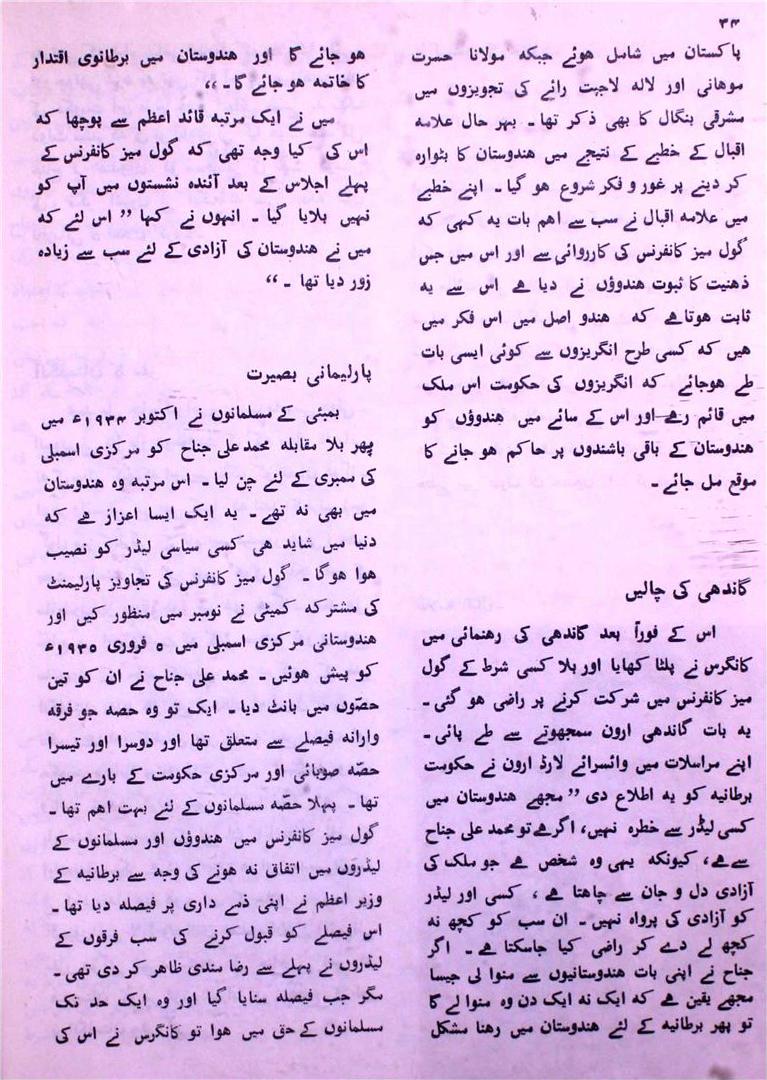 ۳۴
پاکستان میں شامل ہوئے جبکہ مولانا حسرت
موہانی اور لالہ لاجپت رائے کی تجویزوں میں
مشرقی بنگال کا بھی ذکر تھا ۔ بہر حال علامہ
اقبال کے خطبے کے نتیجے میں ہندوستان کا بٹوارہ
کر دینے پر غور و فکر شروع ہو گیا ۔ اپنے خطبے
میں علامہ اقبال نے سب سے اہم بات یہ کہی کہ
گول میز کانفرنس کی کارروائی سے اور اس میں جس
ذہنیت کا ثبوت ہندوؤں نے دیا ہے اس سے یہ
ثابت ہوتا ہے کہ ہندو اصل میں اس فکر میں
ہیں کہ کسی طرح انگریزوں سے کوئی ایسی بات
طے ہوجائے کہ انگریزوں کی حکومت اس ملک
میں قائم رہے اور اس کے سائے میں ہندوؤں کو
ہندوستان کے باقی باشندوں پر حاکم ہو جانے کا
موقع مل جائے ۔
گاندھی کی چالیں
اس کے فوراً بعد گاندھی کی رہنمائی میں
کانگرس نے پلٹا کھایا اور بلا کسی شرط کے گول
میز کانفرنس میں شرکت کرنے پر راضی ہو گئی ۔
یہ بات گاندھی ارون سمجھوتے سے طے پائی ۔
اپنے مراسلات میں وائسرائے لارڈ ارون نے حکومت
برطانیہ کو یہ اطلاع دی ’’ مجھے ہندوستان میں
کسی لیڈر سے خطرہ نہیں، اگر ہے تو محمد علی جناح
سے ہے، کیونکہ یہی وہ شخص ہے جو ملک کی
آزادی دل و جان سے چاہتا ہے ، کسی اور لیڈر
کو آزادی کی پرواہ نہیں ۔ ان سب کو کچھ نہ
کچھ لے دے کر راضی کیا جاسکتا ہے ۔ اگر
جناح نے اپنی بات ہندوستانیوں سے منوا لی جیسا
مجھے یقین ہے کہ ایک نہ ایک دن وہ منوا لے گا
تو پھر برطانیہ کے لئے ہندوستان میں رہنا مشکل
ہو جائے گا اور ہندوستان میں برطانوی اقتدار
کا خاتمہ ہو جائے گا ۔ ‘‘
میں نے ایک مرتبہ قائد اعظم سے پوچھا کہ
اس کی کیا وجہ تھی کہ گول میز کانفرنس کے
پہلے اجلاس کے بعد آئندہ نشستوں میں آپ کو
نہیں بلایا گیا ۔ انہوں نے کہا ’’ اس لئے کہ
میں نے ہندوستان کی آزادی کے لئے سب سے زیادہ
زور دیا تھا ۔ ‘‘
پارلیمانی بصیرت
بمبئی کے مسلمانوں نے اکتوبر ۱۹۳۴ء میں
پھر بلا مقابلہ محمد علی جناح کو مرکزی اسمبلی
کی ممبری کے لئے چن لیا ۔ اس مرتبہ وہ ہندوستان
میں بھی نہ تھے ۔ یہ ایک ایسا اعزاز ہے کہ
دنیا میں شاید ہی کسی سیاسی لیڈر کو نصیب
ہوا ہوگا ۔ گول میز کانفرنس کی تجاویز پارلیمنٹ
کی مشترکہ کمیٹی نے نومبر میں منظور کیں اور
ہندوستانی مرکزی اسمبلی میں ۵ فروری ۱۹۳۵ء
کو پیش ہوئیں ۔ محمد علی جناح نے ان کو تین
حصّوں میں بانٹ دیا ۔ ایک تو وہ حصہ جو فرقہ
وارانہ فیصلے سے متعلق تھا اور دوسرا اور تیسرا
حصّہ صوبائی اور مرکزی حکومت کے بارے میں
تھا ۔ پہلا حصّہ مسلمانوں کے لئے بہت اہم تھا ۔
گول میز کانفرنس میں ہندوؤں اور مسلمانوں کے
لیڈروں میں اتفاق نہ ہونے کی وجہ سے برطانیہ کے
وزیر اعظم نے اپنی ذمے داری پر فیصلہ دیا تھا ۔
اس فیصلے کو قبول کرنے کی سب فرقوں کے
لیڈروں نے پہلے سے رضا مندی ظاہر کر دی تھی ۔
مگر جب فیصلہ سنایا گیا اور وہ ایک حد تک
مسلمانوں کے حق میں ہوا تو کانگرس نے اس کی